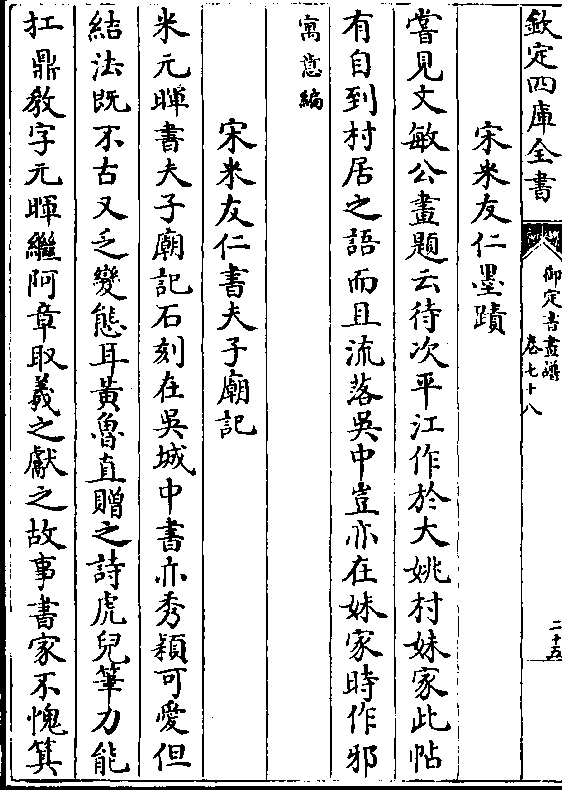 欽定四庫全書
御定書畫譜
卷七十八
二十五
宋米友仁墨蹟
嘗見文敏公畫題云待次平江作於大姚村妹家此帖
有自到村居之語而且流落吳中豈亦在妹家時作邪
寓意編
宋米友仁書夫子廟記
米元暉書夫子廟記石刻在吳城中書亦秀穎可愛但
結法既不古又乏變態耳黃魯直贈之詩虎兒筆力能
扛鼎教字元暉繼阿章取義之獻之故事書家不愧箕